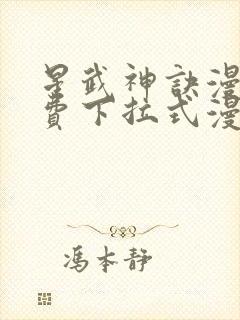 星武神訣漫
費下拉式漫
馮本靜